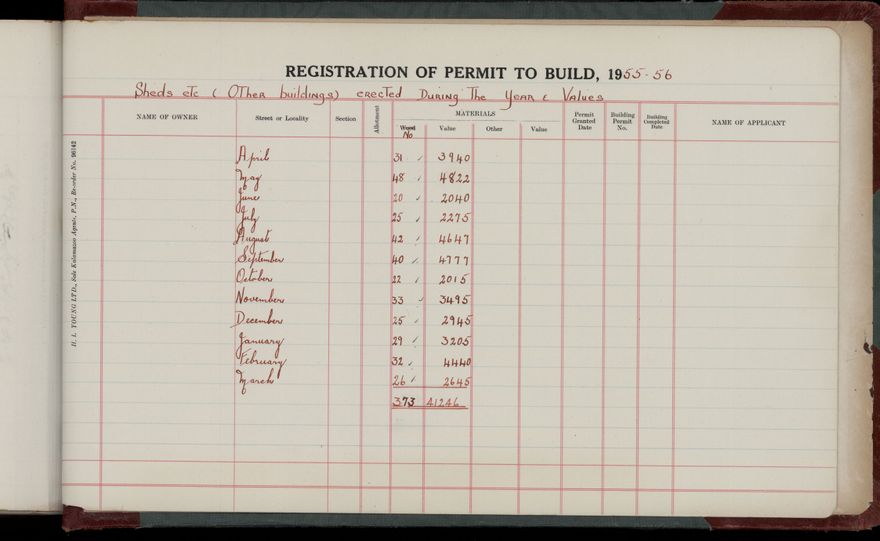 REGISTRATION OF PERMIT TO BUILD, 1955-56
Sheds etc ( Other buildings) erected During The Year & Values
NAME OF OWNER Street or Locality Section Allotment MATERIALS Permit Granted Date Building Permit No. Building Completed Date NAME OF APPLICANT
Wood No Value Other Value
April 31 ✓ 3940
May 48 ✓ 4822
June 20 ✓ 2040
July 25 ✓ 2275
August 42 ✓ 4647
September 40 ✓ 4777
October 22 ✓ 2015
November 33 ✓ 3495
December 25 ✓ 2945
January 29 ✓ 3205
February 32 ✓ 4440
March 26 ✓ 2645
373 41246
H. L. YOUNG LTD., Sole Kalamazoo Agents, P.N., Re-order No. 96142